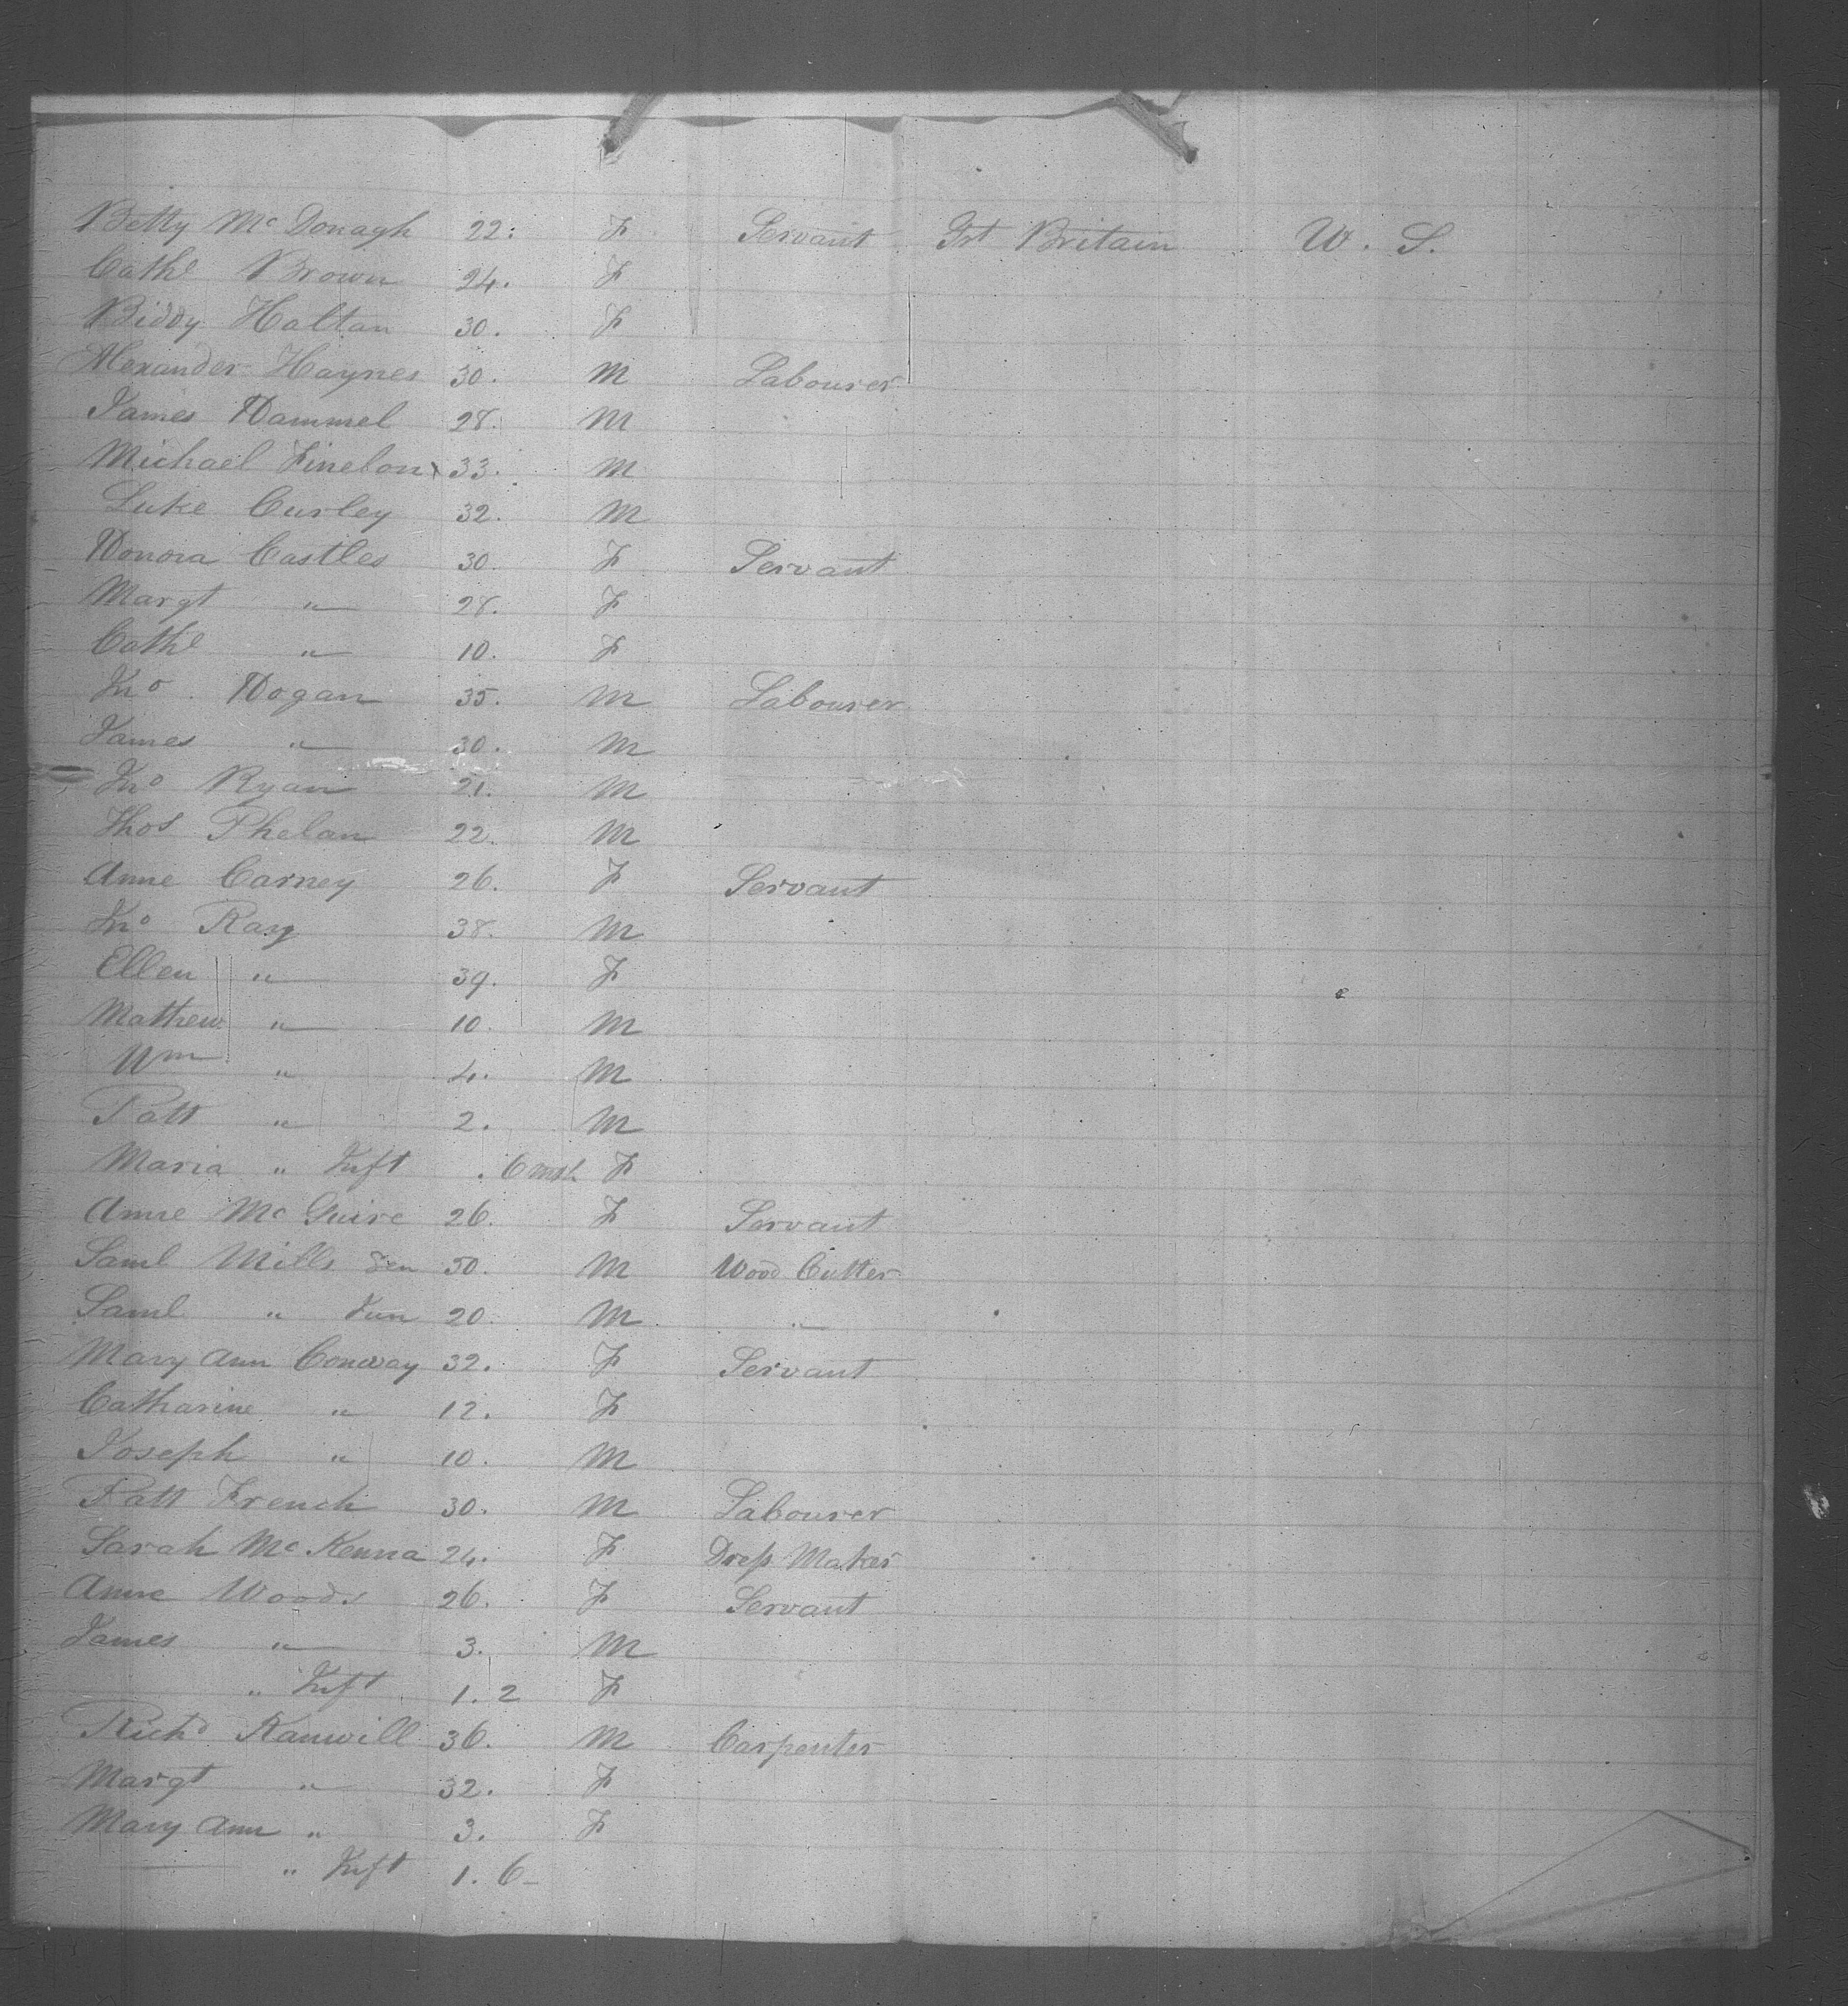 Betty McDonagh 22. F Servant Grt Britain U. S.
Cathe Brown 24. F
Biddy Haltan 30. F
Alexander Haynes 30. M Labourer
James Hammel 28. M
Michael Finelon 33. M
Luke Curley 32. M
Honora Castles 30. F Servant
Margt " 28. F
Cathe " 10. F
Jno. Hogan 35. M Labourer
James " 30. M
Jno Ryan 21. M
Thos Phelan 22. M
Anne Carney 26. F Servant
Jno Ray 38. M
Ellen " 39. F
Mathew " 10. M
Wm " 4. M
Patt " 2. M
Maria " Inft . 6 mths F
Anne McGuire 26. F Servant
Saml Mills Sen 50. M Wood Cutter
Saml " Jun 20. M "
Mary Ann Conway 32. F Servant
Catharine " 12. F
Joseph " 10. M
Patt French 30. M Labourer
Sarah McKenna 24. F Dress Maker
Anne Woods 26. F Servant
James " 3. M
" Inft 1. 2 F
Richd Ranwill 36. M Carpenter
Margt " 32. F
Mary Ann " 3. F
" Inft 1. 6